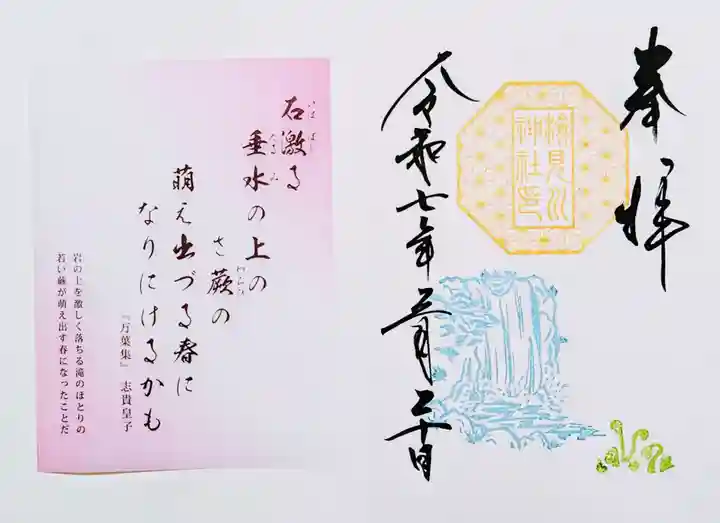 奉拝
検見川
神社印
令和七年三月二十日
石激る
いわばし
垂水の上の
たるみ
さ蕨の
わらび
萌え出づる春に
なりにけるかも
『万葉集』 志貴皇子
岩の上を激しく落ちる滝のほとりの
若い蕨が萌え出す春になったことだ